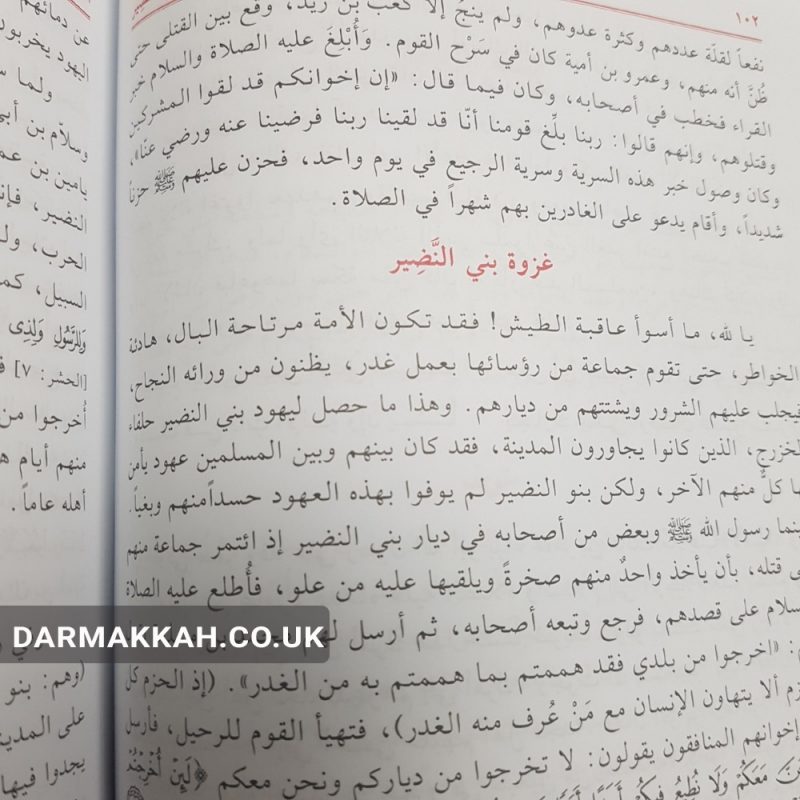 ١٠٢
نفعاً لقلّة عددهم وكثرة عدوهم، ولم ينجُ إلا كعب بن زيد، وقع بين القتلى حتى
ظُنَّ أنه منهم، وعمرو بن أمية كان في سَرْح القوم. وَأُبْلِغَ عليه الصلاة والسلام خبر
القراء فخطب في أصحابه، وكان فيما قال: «إن إخوانكم قد لقوا المشركين
وقتلوهم، وإنهم قالوا: ربنا بلِّغ قومنا أنّا قد لقينا ربنا فرضينا عنه ورضي عنّا»،
وكان وصول خبر هذه السرية وسرية الرجيع في يوم واحد، فحزن عليهم ﷺ حزناً
شديداً، وأقام يدعو على الغادرين بهم شهراً في الصلاة.
غزوة بني النَّضِير
يا لله، ما أسوأ عاقبة الطيش! فقد تكون الأمة مرتاحة البال، هادئة
الخواطر، حتى تقوم جماعة من رؤسائها بعمل غدر، يظنون من ورائه النجاح،
فيجلب عليهم الشرور ويشتتهم من ديارهم. وهذا ما حصل ليهود بني النضير حلفاء
الخزرج، الذين كانوا يجاورون المدينة، فقد كان بينهم وبين المسلمين عهود يأمن
بها كلٌّ منهم الآخر، ولكن بنو النضير لم يوفوا بهذه العهود حسداًمنهم وبغياً.
بينما رسول الله ﷺ وبعض من أصحابه في ديار بني النضير إذ ائتمر جماعة منهم
على قتله، بأن يأخذ واحدٌ منهم صخرةً ويلقيها عليه من علو، فأُطلع عليه الصلاة
والسلام على قصدهم، فرجع وتبعه أصحابه، ثم أرسل لهم
: «اخرجوا من بلدي فقد هممتم بما هممتم به من الغدر». (إذ الحزم كل
الحزم ألا يتهاون الإنسان مع مَنْ عُرف منه الغدر)، فتهيأ القوم للرحيل، فأرسل
إخوانهم المنافقون يقولون: لا تخرجوا من دياركم ونحن معكم ﴿لَئِنْ أُخْرِجْتُمْ
مَعَكُمْ وَلَا نُطِيعُ فِيكُمْ أَحَدًا
عن دمائهم
اليهود يخربون
ولما
وسلّام بن أبي
يامين بن
النضير،
الحرب،
السبيل،
وَلِلرَّسُولِ وَلِذِي
[الحشر: ٧]
أُخرجوا من
منهم أيام
أهله عاماً.
(وهم: بنو
على
يجدوا فيها
DARMAKKAH.CO.UK